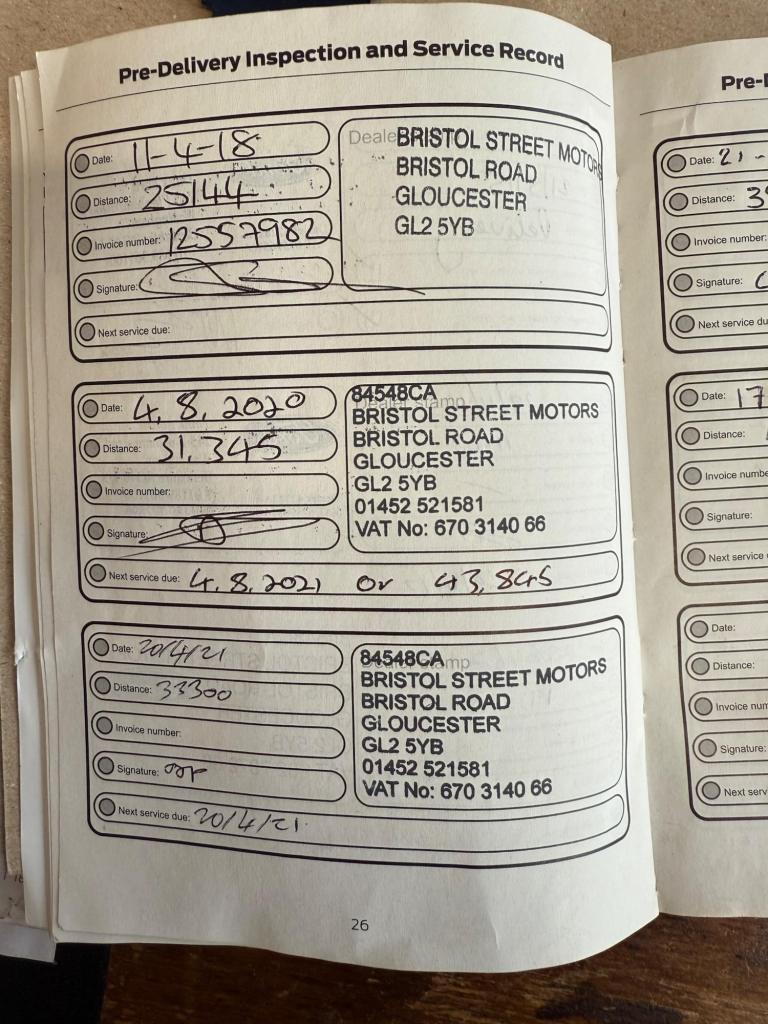 Pre-Delivery Inspection and Service Record
Date: 11-4-18
Distance: 25144
Invoice number: 12557982
Signature:
Next service due:
Dealer
BRISTOL STREET MOTORS
BRISTOL ROAD
GLOUCESTER
GL2 5YB
Date: 4.8.2020
Distance: 31,345
Invoice number:
Signature:
Next service due: 4.8.2021 or 43,845
Dealer stamp
84548CA
BRISTOL STREET MOTORS
BRISTOL ROAD
GLOUCESTER
GL2 5YB
01452 521581
VAT No: 670 3140 66
Date: 20/4/21
Distance: 33300
Invoice number:
Signature:
Next service due: 20/4/21.
Dealer stamp
84548CA
BRISTOL STREET MOTORS
BRISTOL ROAD
GLOUCESTER
GL2 5YB
01452 521581
VAT No: 670 3140 66
26
Pre-
Date: 21-
Distance: 3
Invoice number:
Signature:
Next service du
Date: 17
Distance:
Invoice numbe
Signature:
Next service
Date:
Distance:
Invoice num
Signature:
Next serv